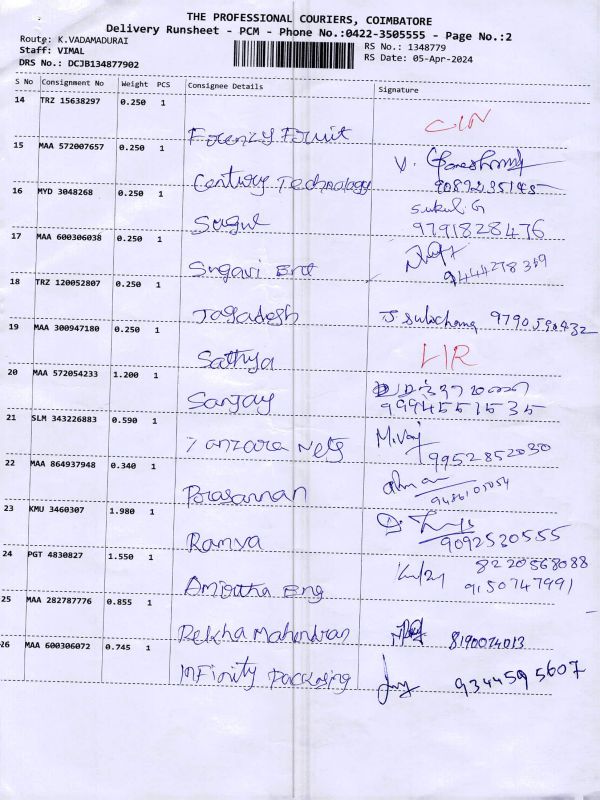 THE PROFESSIONAL COURIERS, COIMBATORE
Delivery Runsheet - PCM - Phone No.:0422-3505555 - Page No.:2
Route: K.VADAMADURAI
Staff: VIMAL
DRS No.: DCJB134877902
RS No.: 1348779
RS Date: 05-Apr-2024
S No Consignment No Weight PCS Consignee Details Signature
14 TRZ 15638297 0.250 1
15 MAA 572007657 0.250 1 Century Technology
16 MYD 3048268 0.250 1 Sugul Sukul G
9791828476
17 MAA 600306038 0.250 1 Sugavi Ent
18 TRZ 120052807 0.250 1 Jagadesh
19 MAA 300947180 0.250 1 Sathya
20 MAA 572054233 1.200 1 Sanjay
99945 51535
21 SLM 343226883 0.590 1 Nets
9952852030
22 MAA 864937948 0.340 1 Prasannan
23 KMU 3460307 1.980 1 Ramya
9092530555
24 PGT 4830827 1.550 1 Amirtha Eng 8220568088
9150747991
25 MAA 282787776 0.855 1 Rekha Mahendran
26 MAA 600306072 0.745 1 Infinity Packaging 9344595607